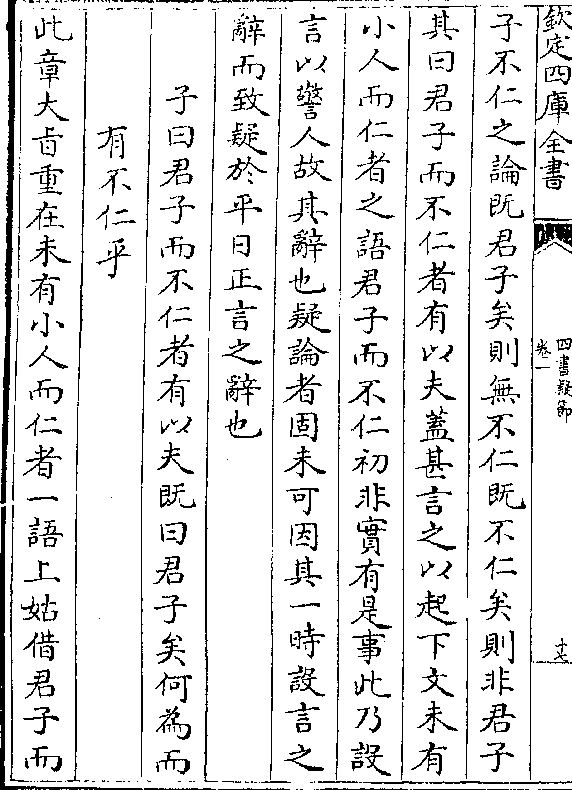 欽定四庫全書
四書疑節
卷一
子不仁之論既君子矣則無不仁既不仁矣則非君子
其曰君子而不仁者有以夫蓋甚言之以起下文未有
小人而仁者之語君子而不仁初非實有是事此乃設
言以警人故其辭也疑論者固未可因其一時設言之
辭而致疑於平日正言之辭也
子曰君子而不仁者有以夫既曰君子矣何為而
有不仁乎
此章大旨重在未有小人而仁者一語上姑借君子而